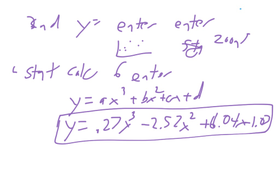 2nd y= enter enter
zoom 9
stat calc 6 enter
y = ax³ + bx² + cx + d
y = .27x³ - 2.52x² + 6.04x + 1.00